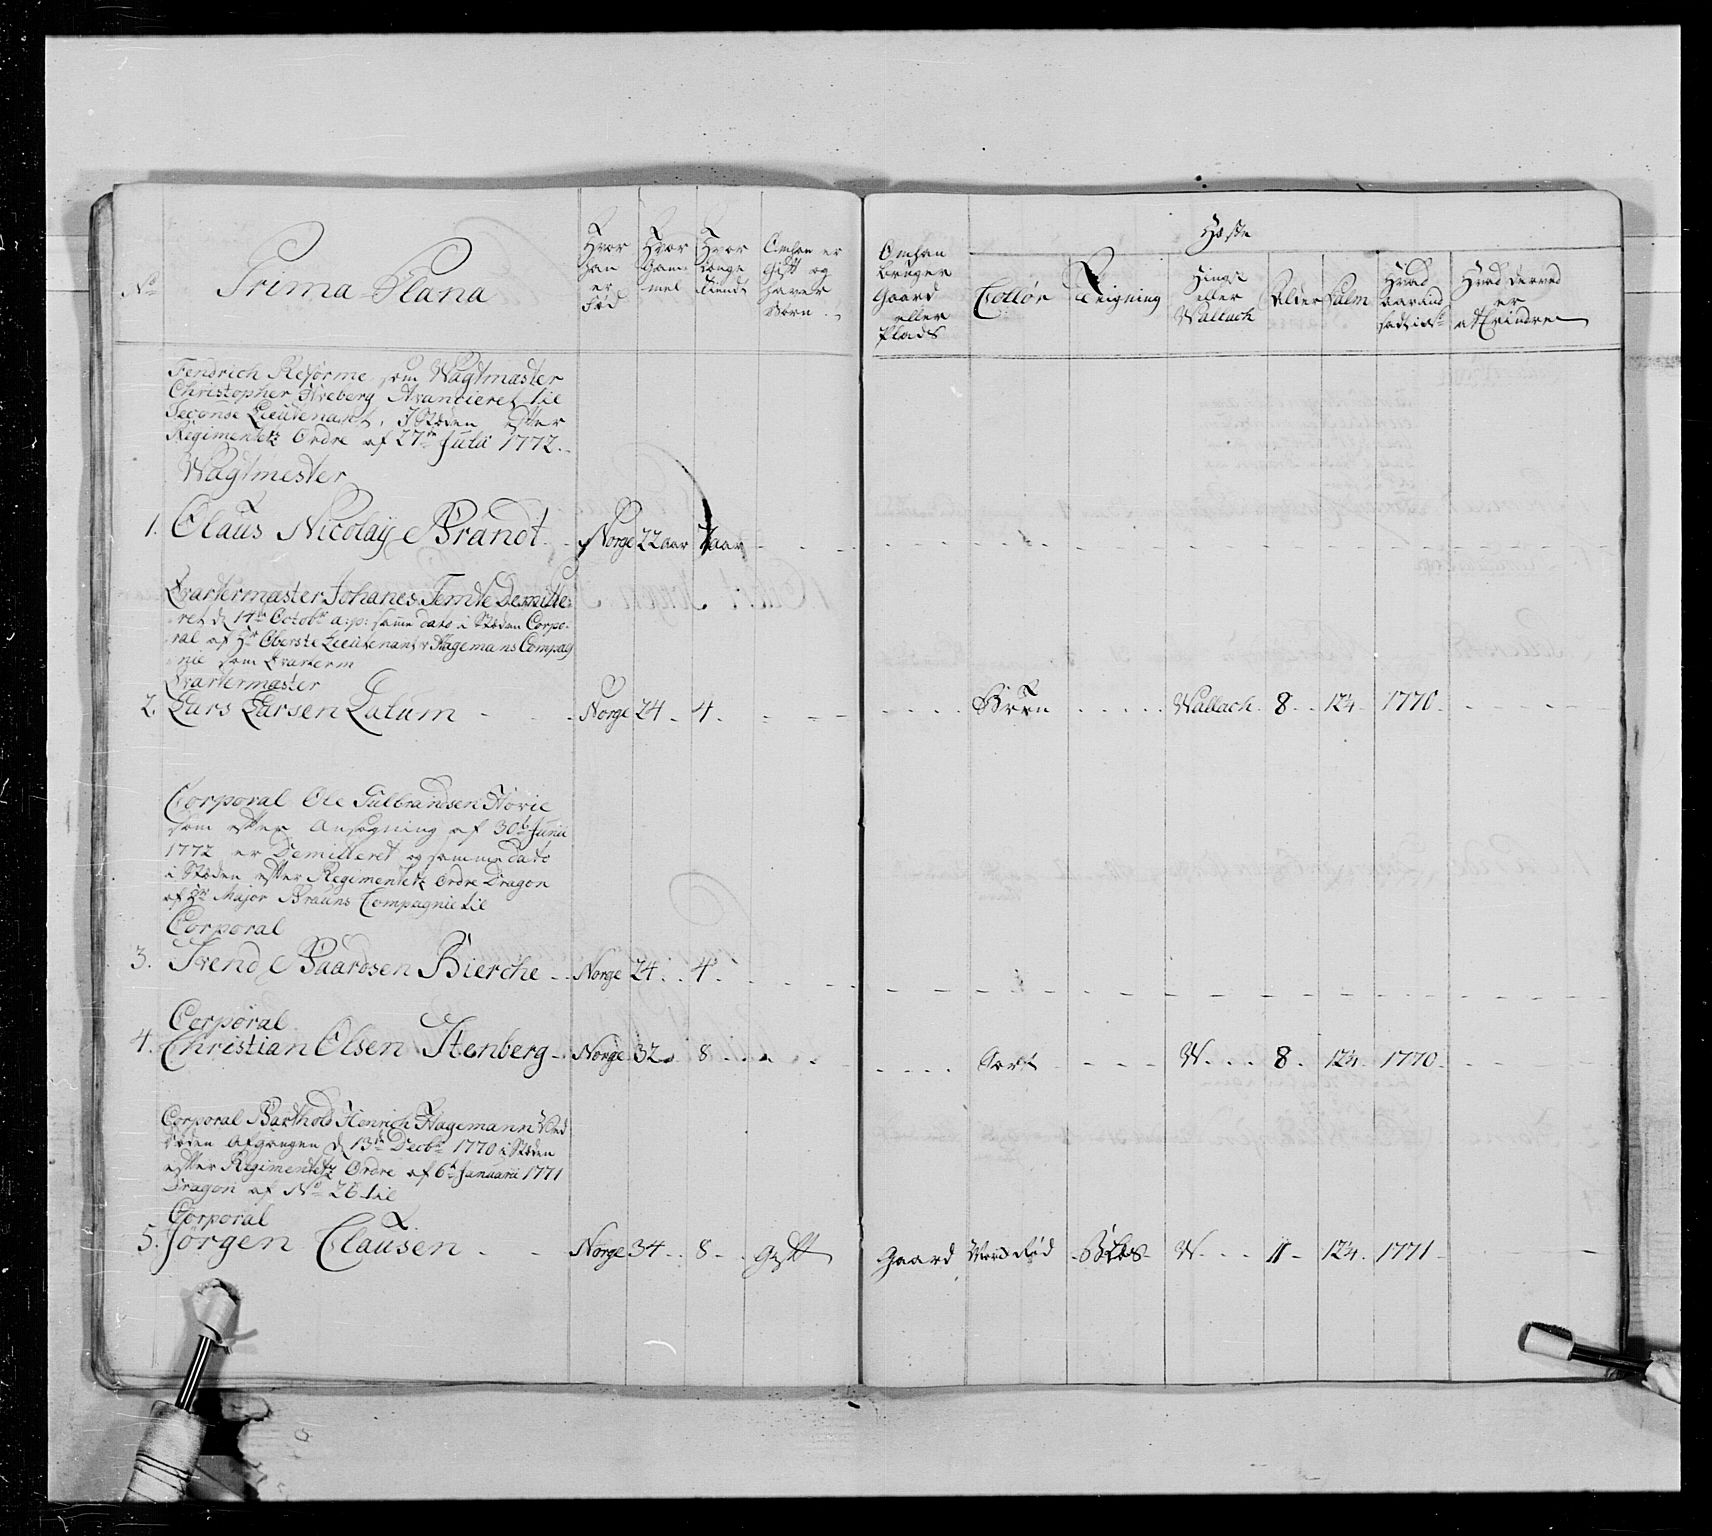 No
Prima Plana
Hvor
han
er
Fød
Hvor
Gam-
mel
Hvor
længe
tiendt
Om han er
Gift og
haver
Børn
Om han
bruger
Gaard
eller
Plads
Heste
Collør
Teigning
Hingst
eller
Wallach
Alder
Palm
Hvad
Aar and
Hvad derved
er
at Erindre
Fendrich Reforme som Wagtmæster
Christopher Avancieret til
Seconde Lieutenant, I Stæden efter
Regimentets Ordre af 27de Julii 1772.
Wagtmester
1. Claus Nicolaÿ Brandt - Norge 22 aar 7 aar
Qvartermæster Johanes Temte Demitte-
ret d 14de Octobr a: p: samme dato i Stæden Corpo-
ral af Hr Oberste Lieutenant v Hagemans Compag
nie som Qvarterm
Qvartermæster
2. Lars Larsen Latum - Norge 24 - 4 - Brun Wallach 8 - 12¼ - 1770
Corporal Ole Gulbrandsen Hovie
som efter Ansøgning af 30te Junii
1772 er Demitteret og samme dato
i Stæden efter Regimentets Ordre Dragon
af Hr Major Brauns Compagnie til
Corporal
3. Svend Baardsen Bierche - Norge 24 - 4
Corporal
4. Christian Olsen Stenberg - Norge 32 - 8 - Sort W - 8 - 12¼ 1770
Corporal Barthold Henrich Hagemann Ved
Døden Afgangen d 13de Decbr 1770 i Stæden
efter Regimentets Ordre af 6te Januarii 1771
Dragon af No 26 til
Corporal
5. Jørgen Clausen - Norge 34 - 8 - Gift Gaard Mørk Rød Blis W - 11 - 12¼ - 1771 -